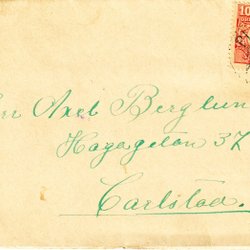 10
Herr Axel Berglun
Hagagatan 37
Carlstad.